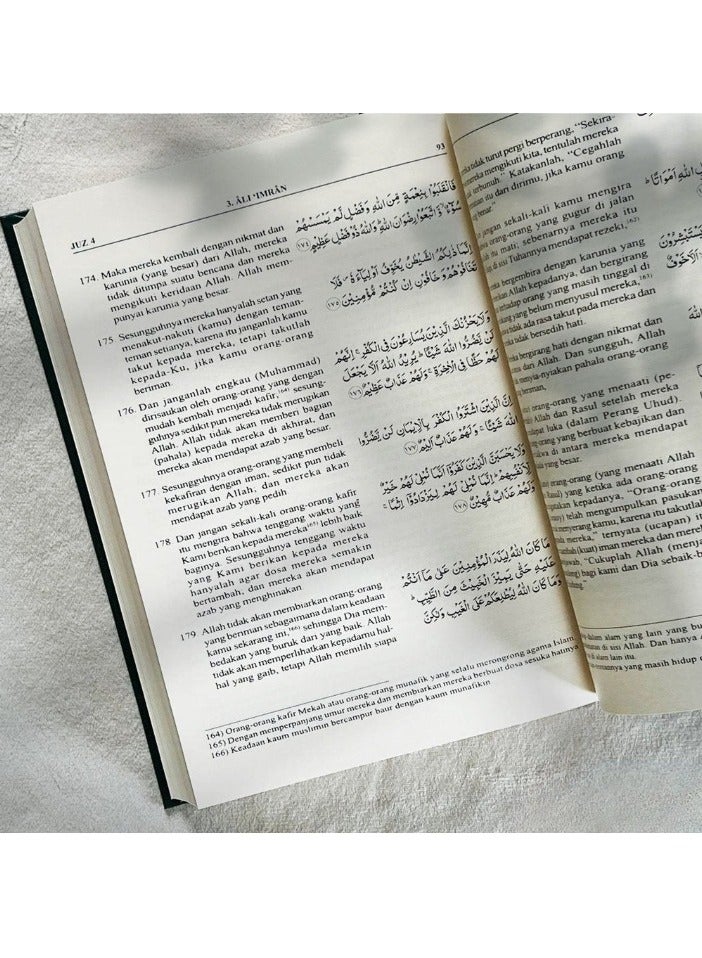 3. ÂLI ‘IMRÂN
93
JUZ 4
174. Maka mereka kembali dengan nikmat dan
karunia (yang besar) dari Allah, mereka
tidak ditimpa suatu bencana dan mereka
mengikuti keridaan Allah. Allah mem-
punyai karunia yang besar.
175 Sesungguhnya mereka hanyalah setan yang
menakut-nakuti (kamu) dengan teman-
teman setianya, karena itu janganlah kamu
takut kepada mereka, tetapi takutlah
kepada-Ku, jika kamu orang-orang
beriman.
176. Dan janganlah engkau (Muhammad)
dirisaukan oleh orang-orang yang dengan
mudah kembali menjadi kafir,164) sesung-
guhnya sedikit pun mereka tidak merugikan
Allah. Allah tidak akan memberi bagian
(pahala) kepada mereka di akhirat, dan
mereka akan mendapat azab yang besar.
177 Sesungguhnya orang-orang yang membeli
kekafiran dengan iman, sedikit pun tidak
merugikan Allah, dan mereka akan
mendapat azab yang pedih
178 Dan jangan sekali-kali orang-orang kafir
itu mengira bahwa tenggang waktu yang
Kami berikan kepada mereka165) lebih baik
baginya. Sesungguhnya tenggang waktu
yang Kami berikan kepada mereka
hanyalah agar dosa mereka semakin
bertambah, dan mereka akan mendapat
azab yang menghinakan
179 Allah tidak akan membiarkan orang-orang
yang beriman sebagaimana dalam keadaan
kamu sekarang ini,166) sehingga Dia mem-
bedakan yang buruk dari yang baik. Allah
tidak akan memperlihatkan kepadamu hal-
hal yang gaib, tetapi Allah memilih siapa
فَانْقَلَبُوْا بِنِعْمَةٍ مِّنَ اللّٰهِ وَفَضْلٍ لَّمْ يَمْسَسْهُمْ
سُوْۤءٌۙ وَّاتَّبَعُوْا رِضْوَانَ اللّٰهِ ۗ وَاللّٰهُ ذُوْ فَضْلٍ عَظِيْمٍ ﴿١٧٤﴾
اِنَّمَا ذٰلِكُمُ الشَّيْطٰنُ يُخَوِّفُ اَوْلِيَاۤءَهٗۖ فَلَا
تَخَافُوْهُمْ وَخَافُوْنِ اِنْ كُنْتُمْ مُّؤْمِنِيْنَ ﴿١٧٥﴾
وَلَا يَحْزُنْكَ الَّذِيْنَ يُسَارِعُوْنَ فِى الْكُفْرِۚ اِنَّهُمْ
لَنْ يَّضُرُّوا اللّٰهَ شَيْـًٔا ۗ يُرِيْدُ اللّٰهُ اَلَّا يَجْعَلَ
لَهُمْ حَظًّا فِى الْاٰخِرَةِ ۚ وَلَهُمْ عَذَابٌ عَظِيْمٌ ﴿١٧٦﴾
اِنَّ الَّذِيْنَ اشْتَرَوُا الْكُفْرَ بِالْاِيْمَانِ لَنْ يَّضُرُّوا
اللّٰهَ شَيْـًٔاۚ وَلَهُمْ عَذَابٌ اَلِيْمٌ ﴿١٧٧﴾
وَلَا يَحْسَبَنَّ الَّذِيْنَ كَفَرُوْٓا اَنَّمَا نُمْلِيْ لَهُمْ خَيْرٌ
لِّاَنْفُسِهِمْ ۗ اِنَّمَا نُمْلِيْ لَهُمْ لِيَزْدَادُوْٓا اِثْمًا ۚ
وَلَهُمْ عَذَابٌ مُّهِيْنٌ ﴿١٧٨﴾
مَا كَانَ اللّٰهُ لِيَذَرَ الْمُؤْمِنِيْنَ عَلٰى مَآ اَنْتُمْ
عَلَيْهِ حَتّٰى يَمِيْزَ الْخَبِيْثَ مِنَ الطَّيِّبِ ۗ
وَمَا كَانَ اللّٰهُ لِيُطْلِعَكُمْ عَلَى الْغَيْبِ وَلٰكِنَّ
164) Orang-orang kafir Mekah atau orang-orang munafik yang selalu merongrong agama Islam
165) Dengan memperpanjang umur mereka dan membiarkan mereka berbuat dosa sesuka hatinya
166) Keadaan kaum muslimin bercampur baur dengan kaum munafikin
tidak turut pergi berperang, “Sekira-
mereka mengikuti kita, tentulah mereka
terbunuh.” Katakanlah, “Cegahlah
itu dari dirimu, jika kamu orang
benar.”
jangan sekali-kali kamu mengira
orang-orang yang gugur di jalan
itu mati; sebenarnya mereka itu
di sisi Tuhannya mendapat rezeki,
bergembira dengan karunia yang
Allah kepadanya, dan bergirang
terhadap orang yang masih tinggal di
yang belum menyusul mereka,
tidak ada rasa takut pada mereka dan
bersedih hati.
bergirang hati dengan nikmat dan
dari Allah. Dan sungguh, Allah
menyia-nyiakan pahala orang-orang
beriman,
orang-orang yang menaati (pe-
Allah dan Rasul setelah mereka
luka (dalam Perang Uhud).
orang yang berbuat kebajikan dan
di antara mereka mendapat
yang besar.
orang-orang (yang menaati Allah
Rasul) yang ketika ada orang-orang
kepadanya, “Orang-orang
telah mengumpulkan pasukan
menyerang kamu, karena itu takutlah
mereka,” ternyata (ucapan) itu
(kuat) iman mereka dan mereka
“Cukuplah Allah (menja-
bagi kami dan Dia sebaik-b
اللّٰهِ اَمْوَاتًا ۗ
dalam alam yang lain yang bu
di sisi Allah. Dan hanya A
di alam lain itu.
yang masih hidup d